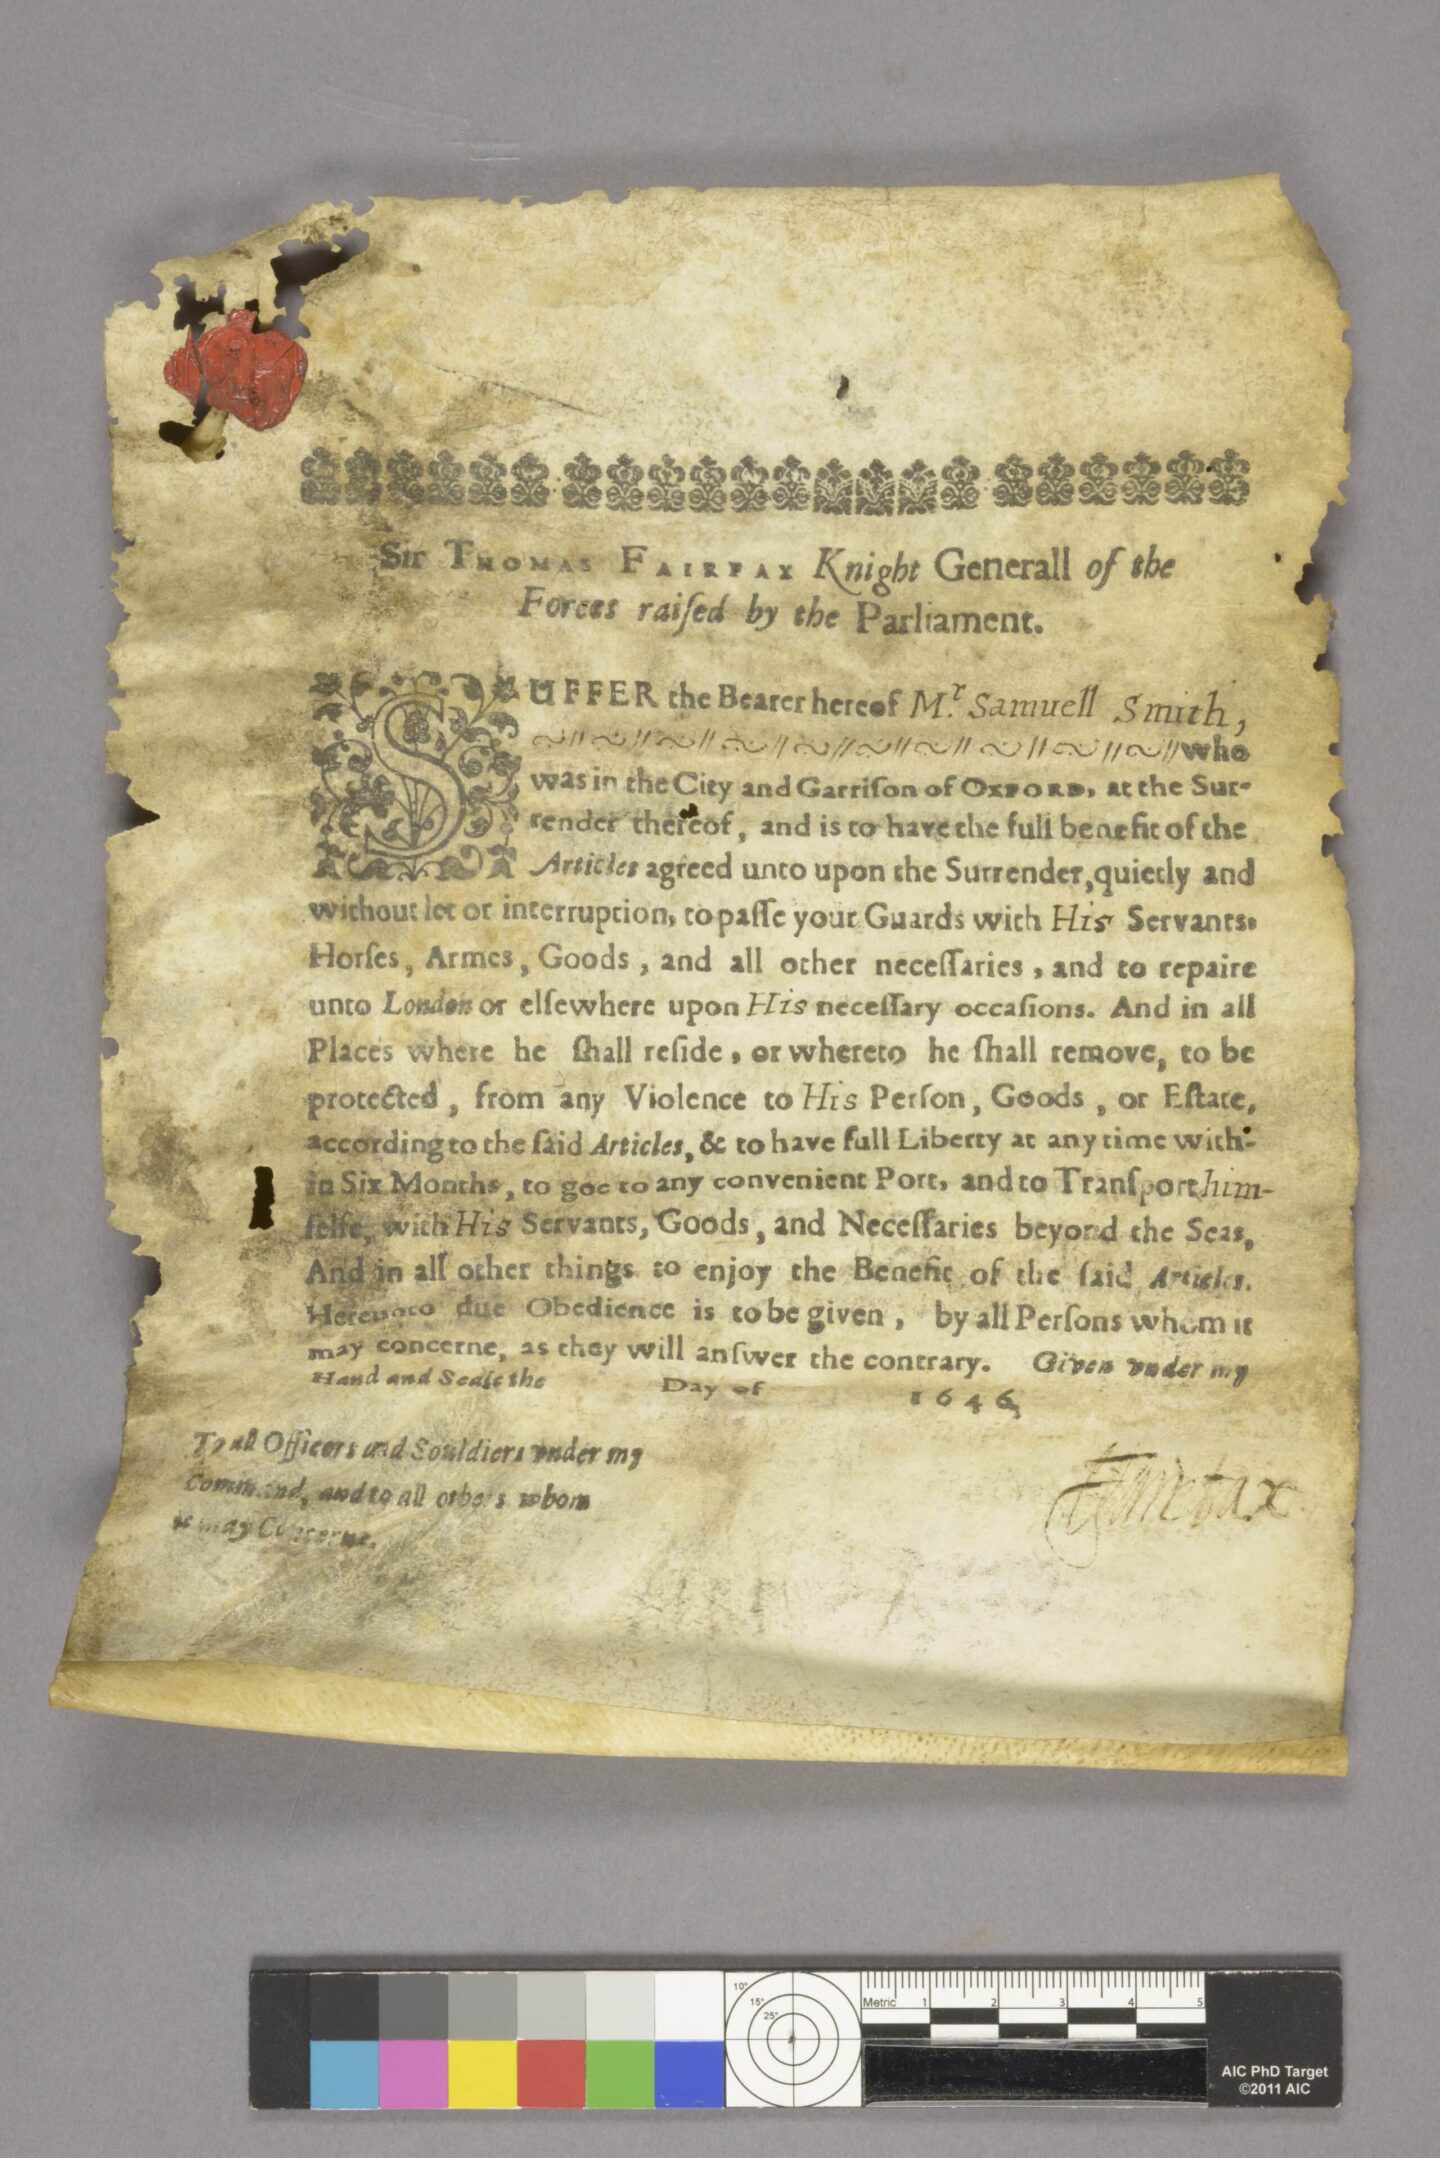 Sir THOMAS FAIRFAX Knight Generall of the
Forces raiſed by the Parliament.
SUFFER the Bearer hereof Mr. Samuell Smith,
who
was in the City and Garriſon of OXFORD, at the Sur-
render thereof, and is to have the full benefit of the
Articles agreed unto upon the Surrender, quietly and
without let or interruption, to paſſe your Guards with His Servants,
Horſes, Armes, Goods, and all other neceſſaries, and to repaire
unto London or elſewhere upon His neceſſary occaſions. And in all
Places where he ſhall reſide, or whereto he ſhall remove, to be
protected, from any Violence to His Perſon, Goods, or Eſtate,
according to the ſaid Articles, & to have full Liberty at any time with-
in Six Months, to goe to any convenient Port, and to Tranſport him-
ſelfe, with His Servants, Goods, and Neceſſaries beyond the Seas,
And in all other things to enjoy the Benefit of the ſaid Articles.
Hereunto due Obedience is to be given, by all Perſons whom it
may concerne, as they will anſwer the contrary. Given under my
Hand and Seale the Day of 1646,
To all Officers and Souldiers under my
Command, and to all others whom
it may Concerne.
Fairfax
10°
15°
25°
Metric 1 2 3 4 5
AIC PhD Target
©2011 AIC